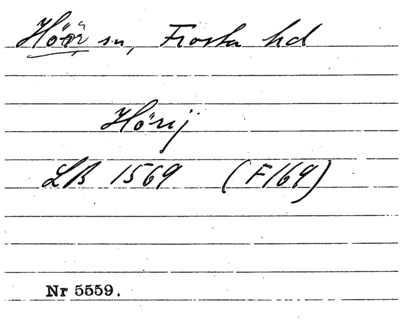 Höör sn, Frosta hd
Hörij
LB 1569 (F169)
Nr 5559.